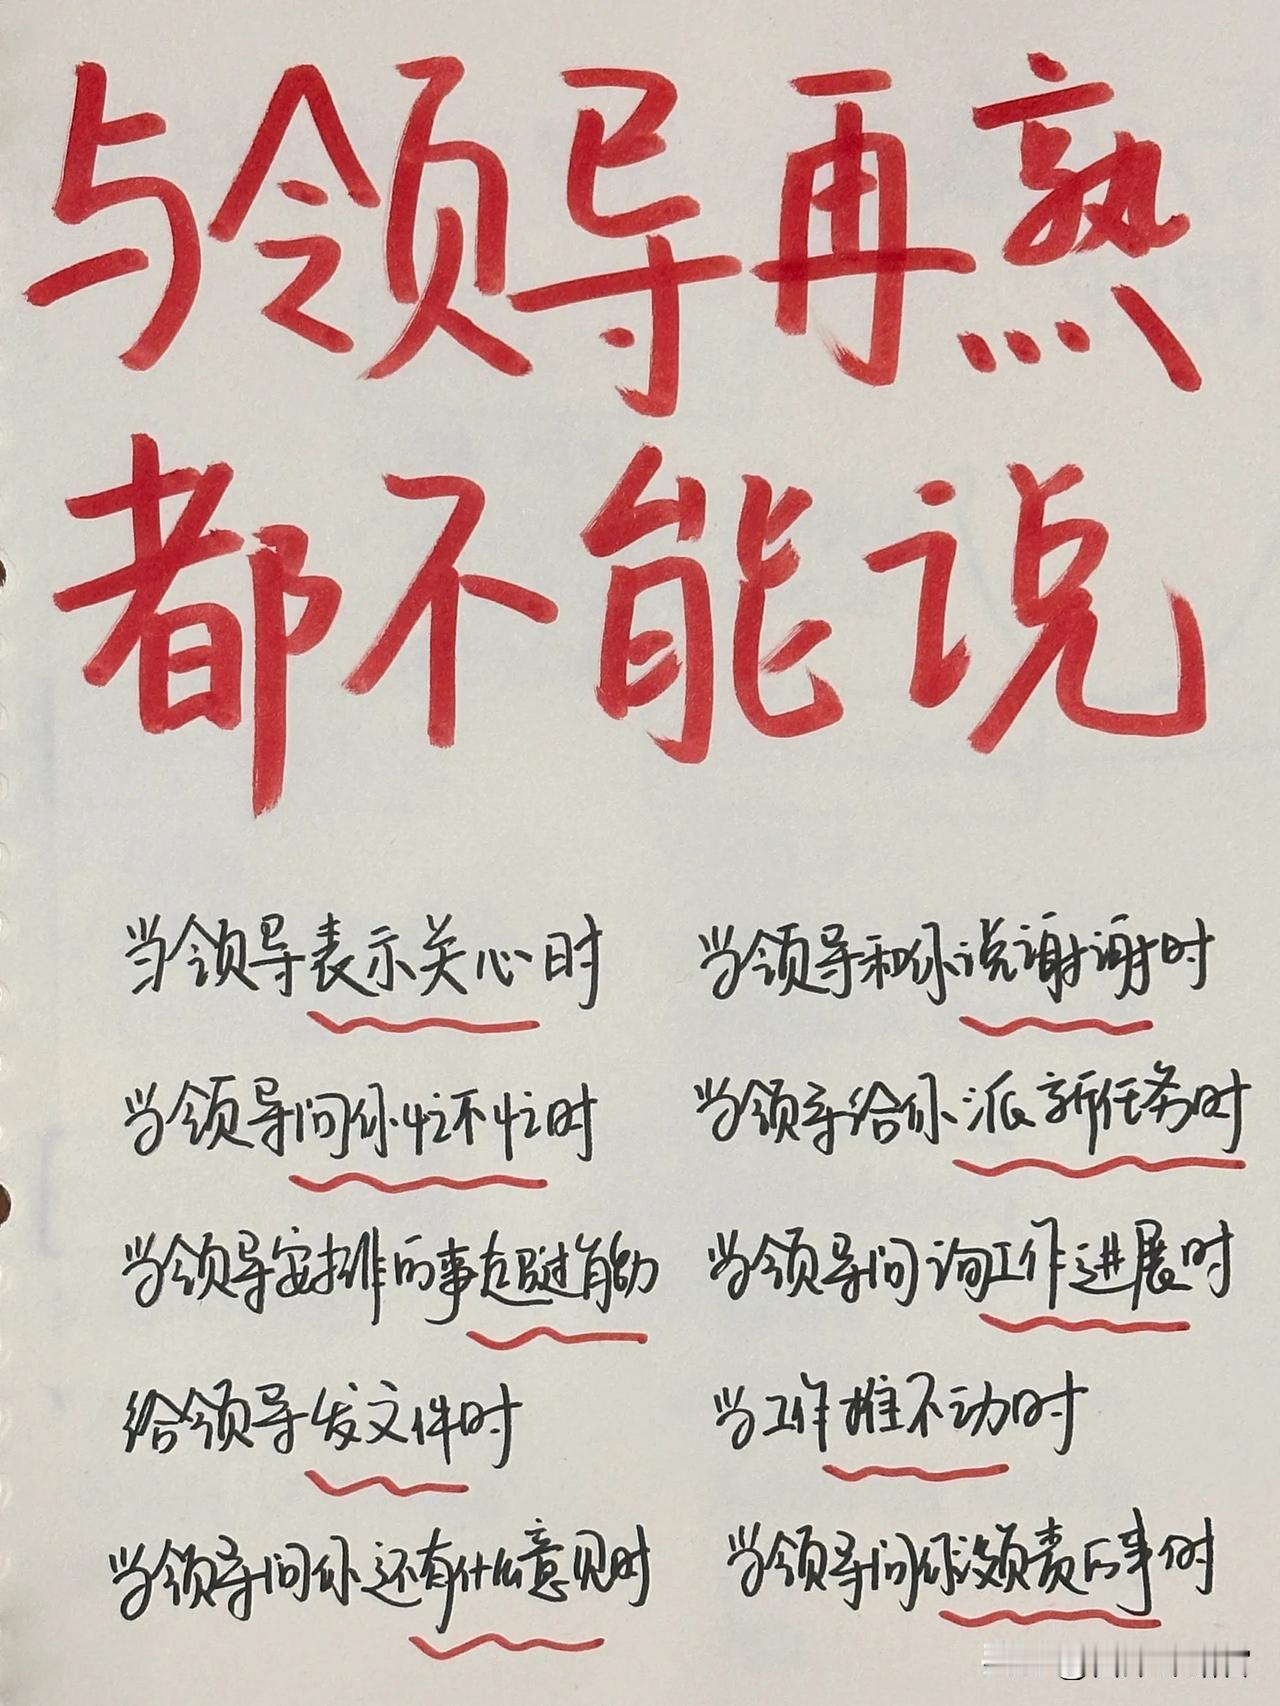 与领导再熟
都不能说
当领导表示关心时
当领导和你说谢谢时
当领导问你忙不忙时
当领导给你派新任务时
当领导安排的事超过能力
当领导问询工作进展时
给领导发文件时
当工作推不动时
当领导问你还有什么意见时
当领导问你没负责的事时